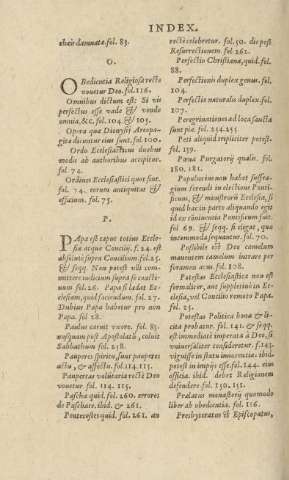 INDEX.
abeis damnatæ. fol. 83.
O.
OBedientia Religiosa recto
vouetur Deo. fol. 116.
Omnibus dictum est: Si vis
perfectus esse vade & vende
omnia, &c. fol. 104. & 105.
Opera quæ Dionysij Areopa-
gitæ dicuntur eius sunt. fol. 100.
Ordo Ecclesiasticus duobus
modis ab authoribus accipitur.
fol. 74.
Ordines Ecclesiastici quot sint.
fol. 74. eorum antiquitas &
essatum. fol. 75.
P.
PApa est caput totius Eccle-
siæ atque Concilij. f. 24. est
absolutè supra Concilium. fol. 25.
& seqq. Non potest illi com-
mittere iudicium supra se coacti-
uum fol. 26. Papa si lædat Ec-
clesiam, quid faciendum. fol. 27.
Dubius Papa habetur pro non
Papa. fol. 28.
Paulus caruit vxore. fol. 83.
nusquam post Apostolatũ, coluit
Sabbathum fol. 218.
Pauperes spiritu, sunt pauperes
actu, & affectu. fol. 114. 115.
Paupertas volũtaria rectè Deo
vouetur fol. 114. 115.
Pascha quid. fol. 260. errores
de Paschate. ibid. & 261.
Pentecostes quid. fol. 261. an
rectè celebretur. fol. 50. die post
Resurrectionem. fol. 261.
Perfectio Christiana, quid. fol.
88.
Perfectionis duplex genus. fol.
104.
Perfectio naturalis duplex. fol.
107.
Peregrinationes ad loca sancta
sunt piæ. fol. 254. 255
Peti aliquid trpliciter potest.
fol. 139.
Pœna Purgatorij qualis. fol.
180, 181.
Popularium non habet suffra-
gium ferendi in electione Ponti-
ficum, & ministrorũ Ecclesiæ, si
quid horum partis aliquando egit
id ex cõniuentia Pontificum fuit.
fol. 69. & seqq. si erigat, quæ
incommoda sequantur. fol. 70.
Possibile est Deo camelum
manentem camelum intrare per
foramen acus. fol. 108.
Potestas Ecclesiastica non est
formaliter, aut suppletiuè in Ec-
clesia, vel Concilio remoto Papa.
fol. 25.
Potestas Politica bona & li-
cita probatur. fol. 141. & seqq.
est immediatè imperata à Deo, si
vniuersaliter consideretur. f. 143.
viguisset in statu innocentiæ. ibid.
potest in impijs esse. fol. 144. eius
officia. ibid. debet Religionem
defendere fol. 150, 151.
Prælatus monasterij quomodo
liber ab obedientia. fol. 116.
Presbyteratus & Episcopatus,